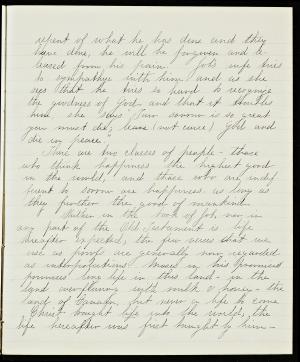 repent of what he has done and they
have done, he will be forgiven and re-
leased from his pain. Job's wife tries
to sympathize with him and as she
sees that he tries so hard to recognize
the goodness of God and that it troubles
him she says "Your sorrow is so great
you must die; leave (not curse) God and
die in peace."
There are two classes of people - those
who think happiness the highest good
in the world, and those who are indif
ferent to sorrow or happiness as long as
they further the good of mankind.
Neither in the book of Job nor in
any part of the Old Testament is life
hereafter expected, the few verses that we
use as proofs are generally now regarded
as interpolations. in his promised
long life in this land - in the
land overflowing with milk & honey - the
land of Canaan, but never a life to come
Christ brought life into the world, the
life hereafter was first brought by him -